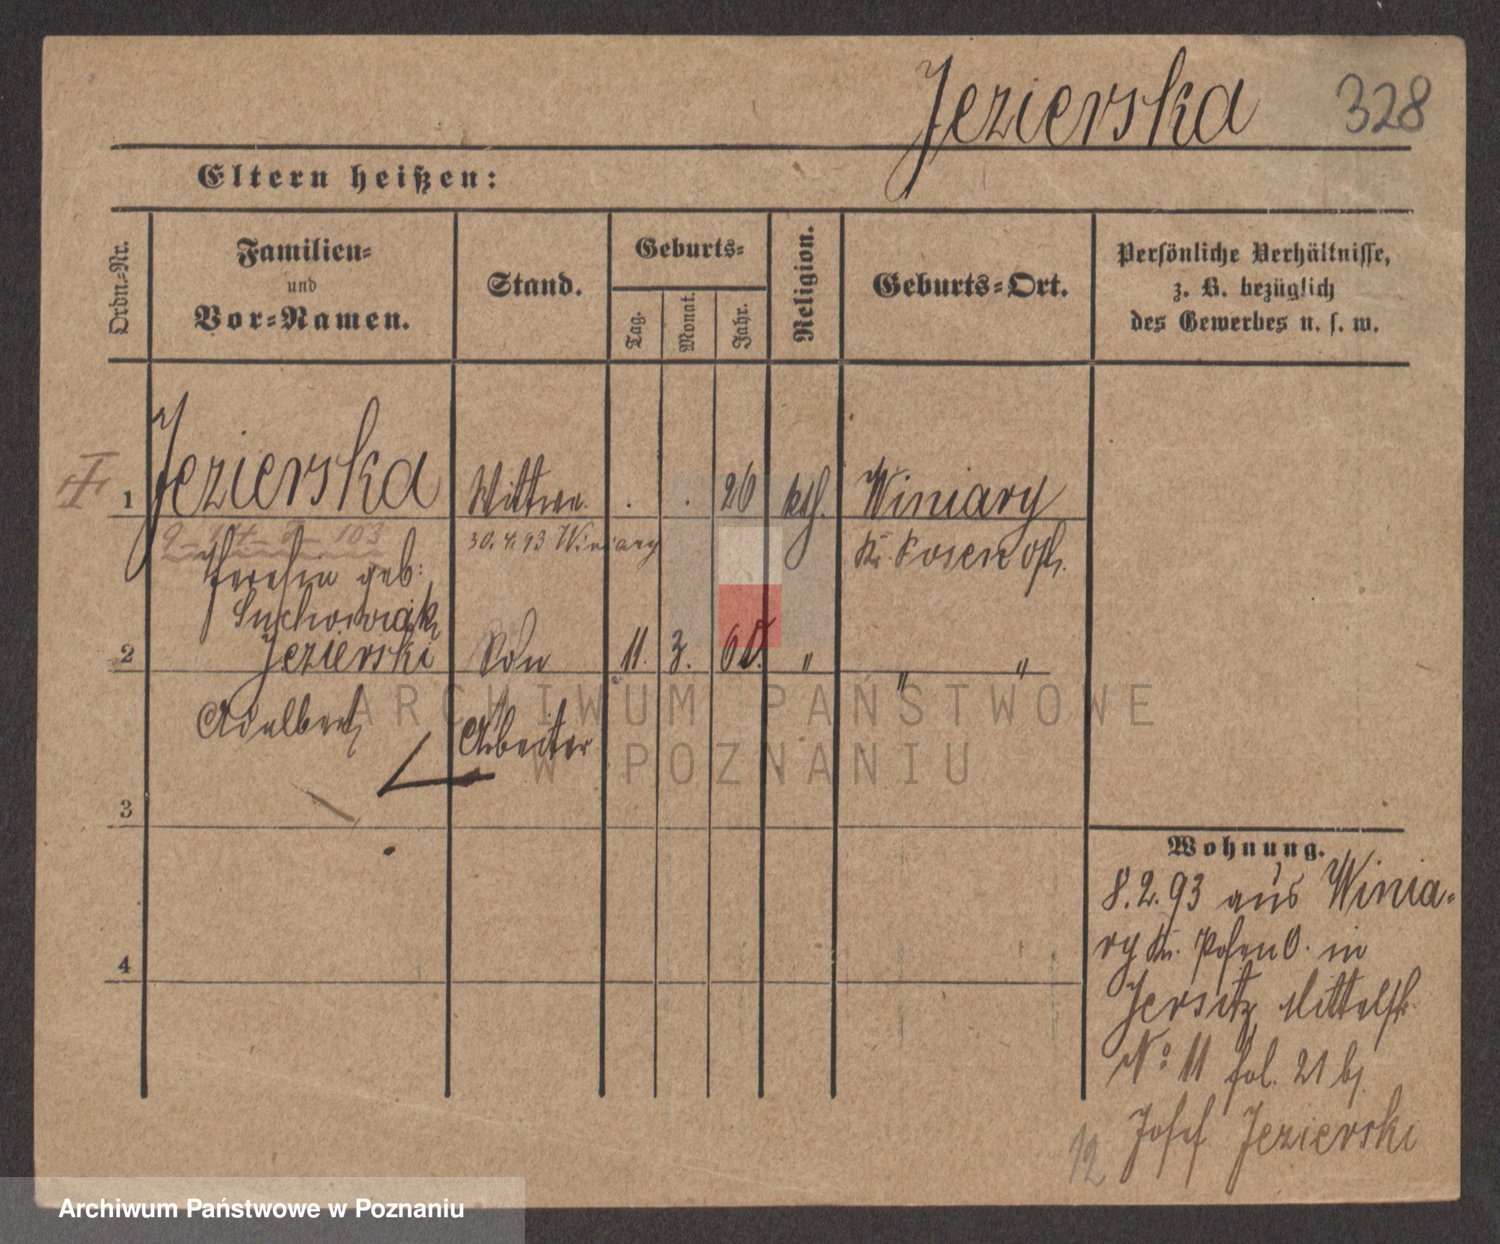 Jezierska 328
Eltern heißen:
Ordn.-Nr.
Familien-
und
Vor-Namen.
Stand.
Geburts-
Tag.
Monat.
Jahr.
Religion.
Geburts-Ort.
Persönliche Verhältnisse,
z. B. bezüglich
des Gewerbes u. s. w.
1 Jezierska Wittwe . . 26 kth. Winiary
30.4.93 Winiary Kr. Posen Ost.
geb:
2 Jezierski Sohn 11. 3. 60. " " "
Adalbert Arbeiter
3
4
Wohnung.
8.2.93 aus Winia-
ry Kr. Posen O. in
Jersitz, Mittelstr.
No 11 fol. 21 bj
Josef Jezierski
12
ARCHIWUM PAŃSTWOWE
W POZNANIU
Archiwum Państwowe w Poznaniu